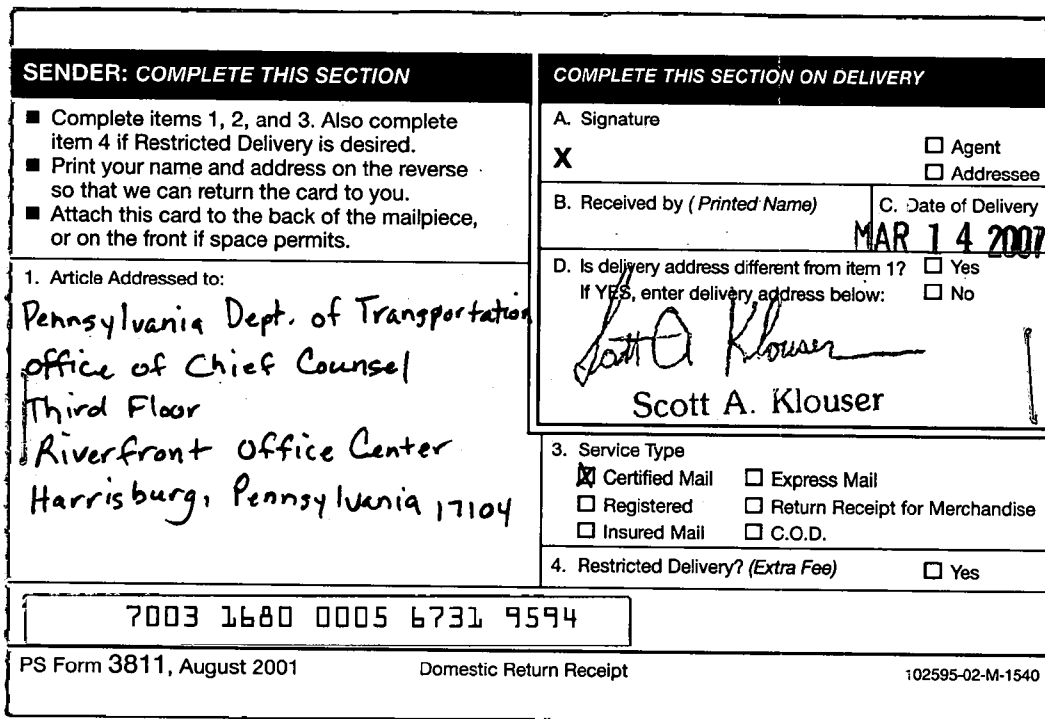 SENDER: COMPLETE THIS SECTION
■ Complete items 1, 2, and 3. Also complete
item 4 if Restricted Delivery is desired.
■ Print your name and address on the reverse
so that we can return the card to you.
■ Attach this card to the back of the mailpiece,
or on the front if space permits.
1. Article Addressed to:
Pennsylvania Dept. of Transportation
office of Chief Counsel
Third Floor
Riverfront Office Center
Harrisburg, Pennsylvania 17104
COMPLETE THIS SECTION ON DELIVERY
A. Signature
X
☐ Agent
☐ Addressee
B. Received by (Printed Name)
C. Date of Delivery
MAR 14 2007
D. Is delivery address different from item 1? ☐ Yes
If YES, enter delivery address below: ☐ No
Scott A Klouser
Scott A. Klouser
3. Service Type
☒ Certified Mail ☐ Express Mail
☐ Registered ☐ Return Receipt for Merchandise
☐ Insured Mail ☐ C.O.D.
4. Restricted Delivery? (Extra Fee) ☐ Yes
7003 1680 0005 6731 9594
PS Form 3811, August 2001 Domestic Return Receipt 102595-02-M-1540